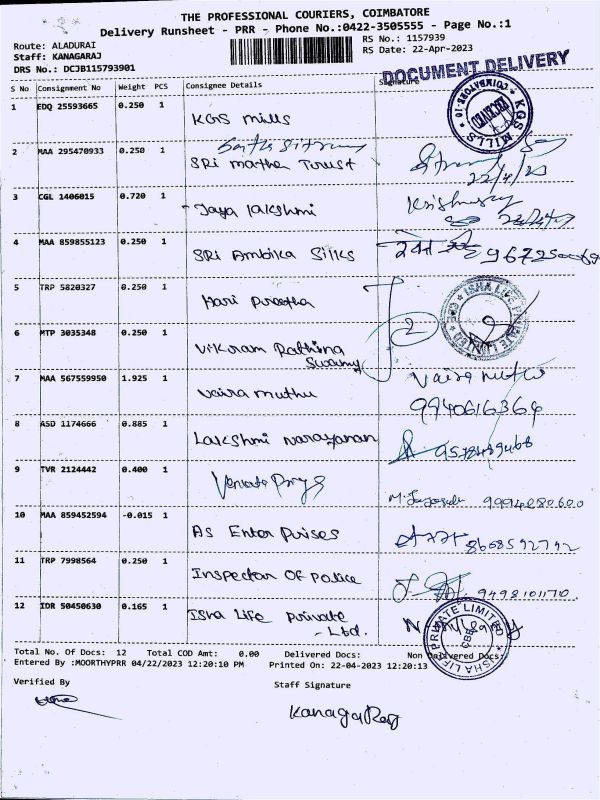 THE PROFESSIONAL COURIERS, COIMBATORE
Delivery Runsheet - PRR - Phone No.:0422-3505555 - Page No.:1
Route: ALADURAI
RS No.: 1157939
Staff: KANAGARAJ
RS Date: 22-Apr-2023
DRS No.: DCJB115793901
DOCUMENT DELIVERY
S No Consignment No Weight PCS Consignee Details Signature
1 EDQ 25593665 0.250 1 KGS mills
KGS MILLS COIMBATORE-10 RECEIVED
2 MAA 295470933 0.250 1 SRi matha Trust
22/4/23
3 CGL 1406015 0.720 1 Jaya lakshmi
4 MAA 859855123 0.250 1 SRi Ambika Silks
5 TRP 5820327 0.250 1 Hari Preetha
2
ISHA LIFE PRIVATE LIMITED CBE
6 MTP 3035348 0.250 1 Vikram Rathina
Swamy
7 MAA 567559950 1.925 1 Vaira muthu Vaira muthu
9940616364
8 ASD 1174666 0.885 1 Lakshmi narayanan
9 TVR 2124442 0.400 1
9994280600
10 MAA 859452594 -0.015 1 As Enter Prises 8668592792
11 TRP 7998564 0.250 1 Inspector OF Police 9498101170
12 IDR 50450630 0.165 1 Isha Life private
- Ltd.
ISHA LIFE PRIVATE LIMITED CBE
Total No. Of Docs: 12 Total COD Amt: 0.00 Delivered Docs: Non Delivered Docs:
Entered By :MOORTHYPRR 04/22/2023 12:20:10 PM Printed On: 22-04-2023 12:20:13
Verified By Staff Signature
KanagaRaj